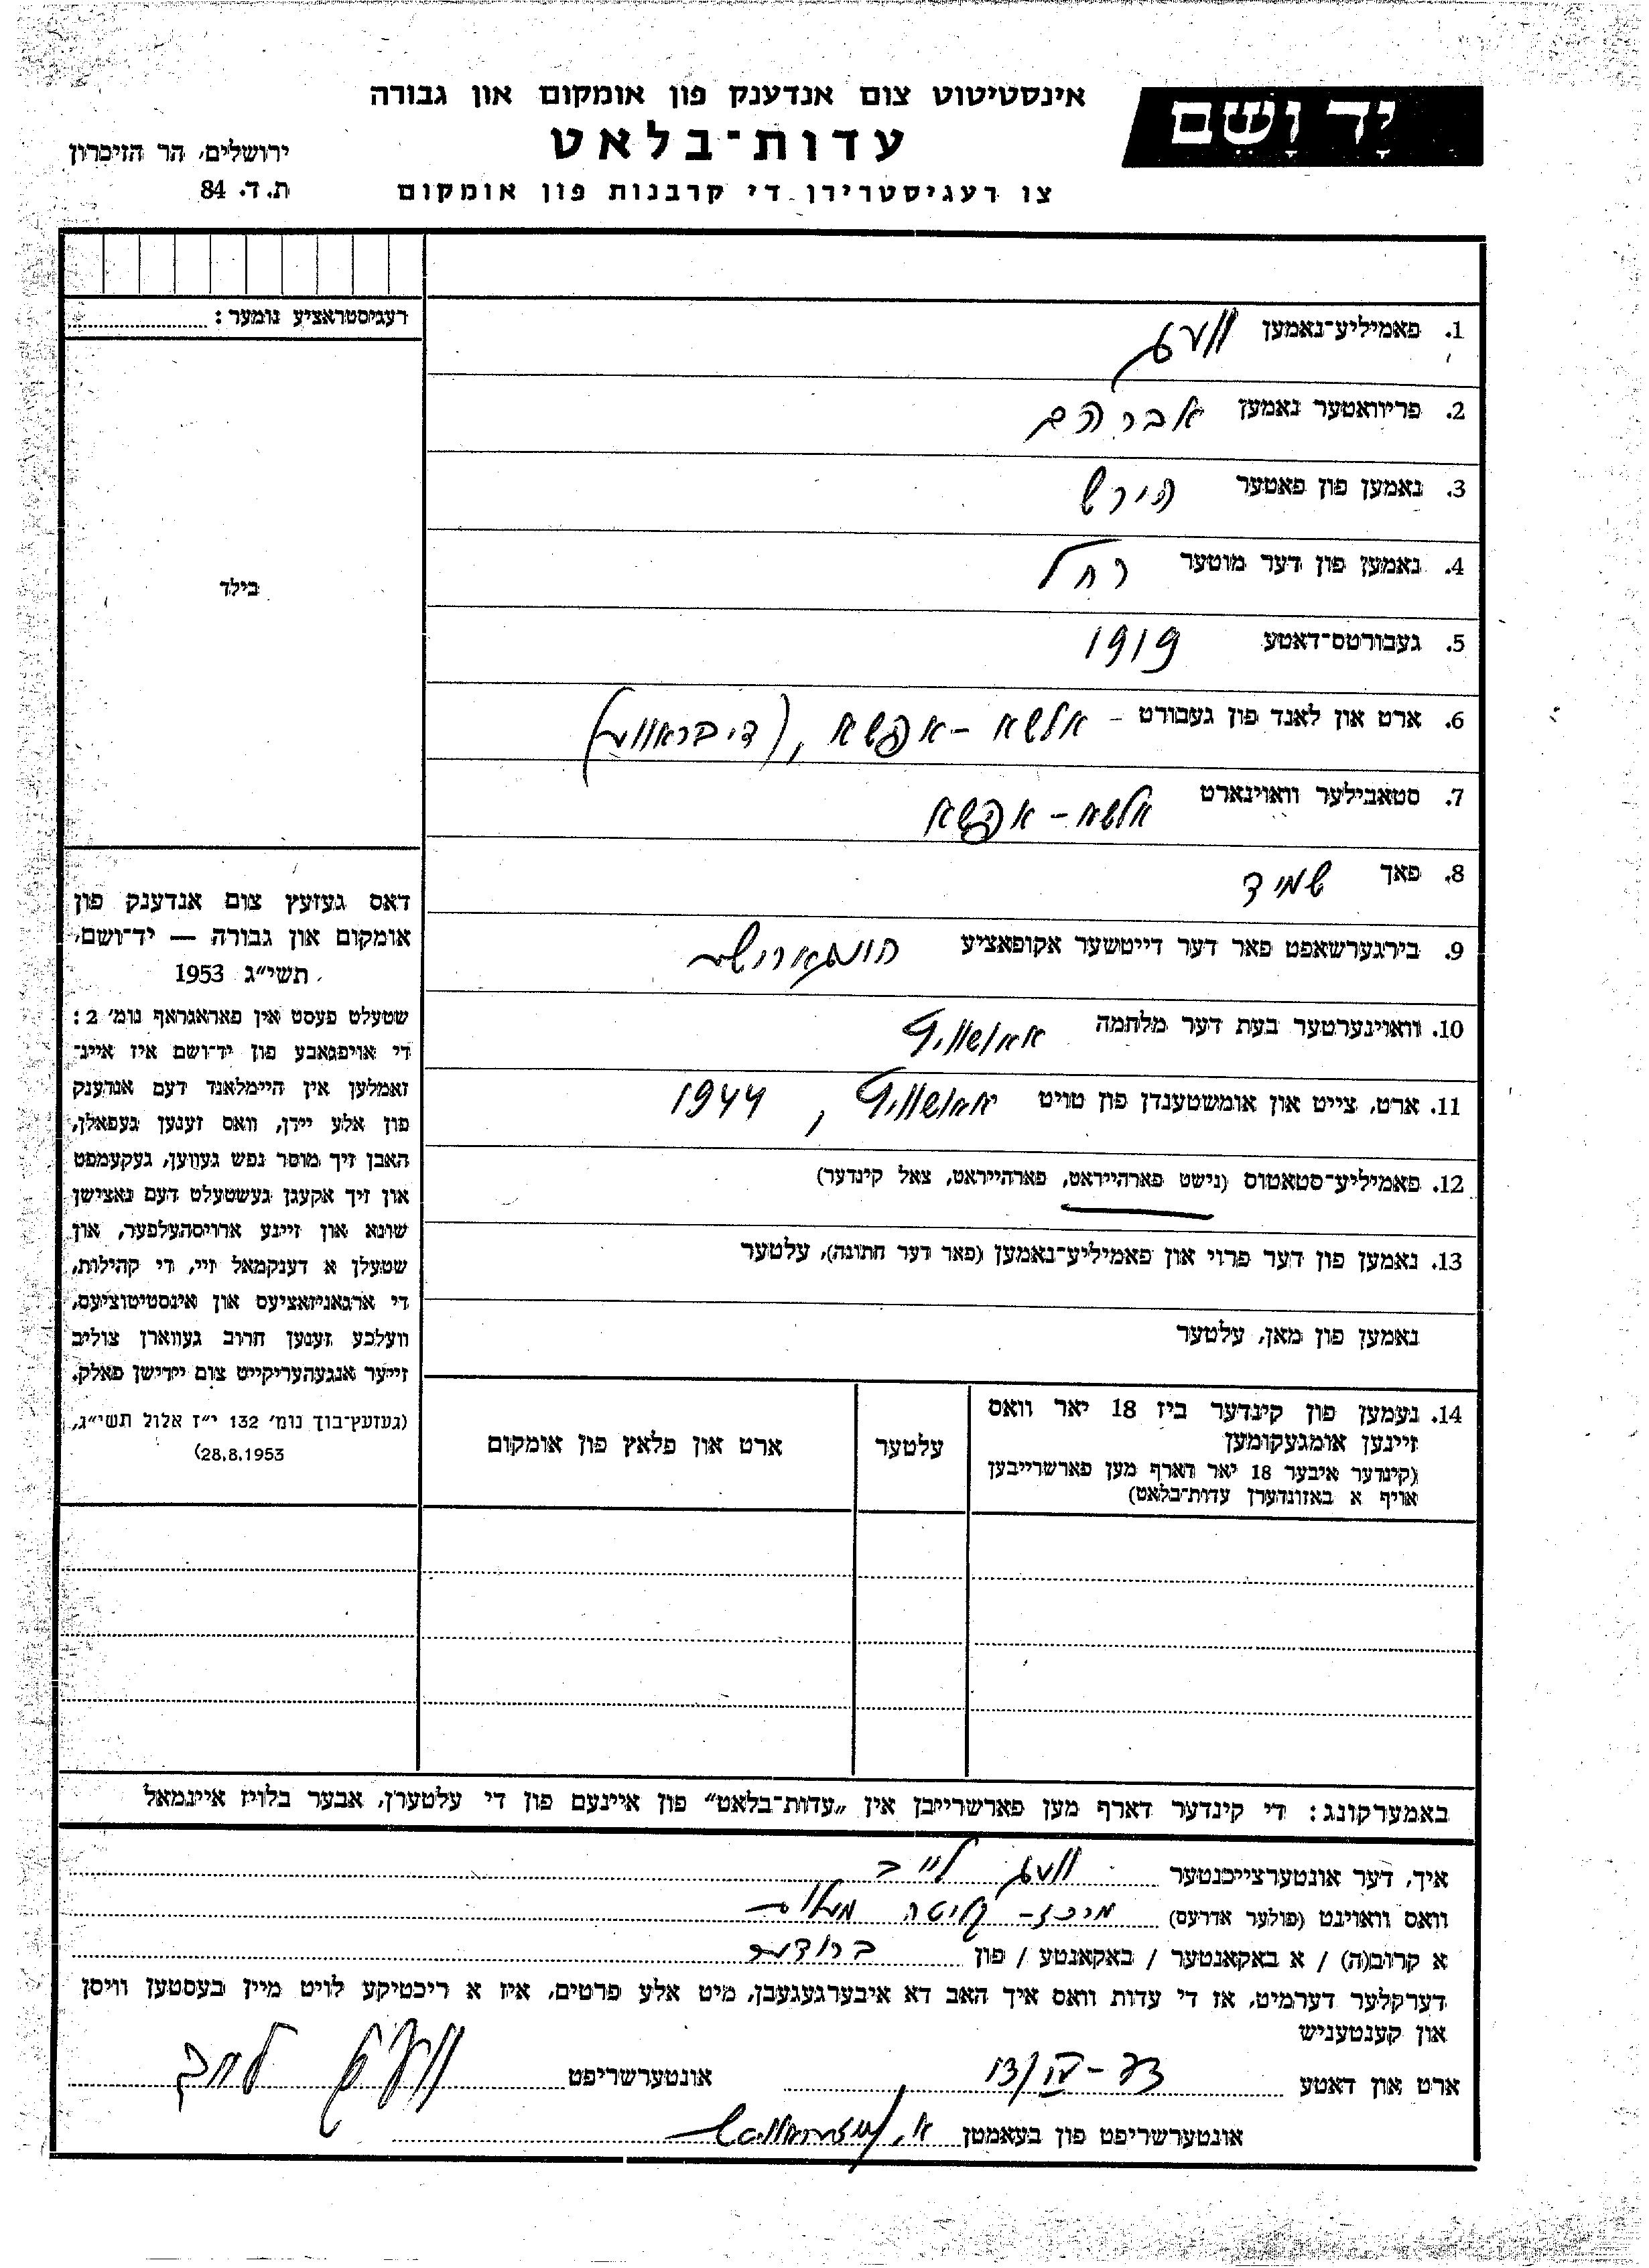 יד ושם
אינסטיטוט צום אנדענק פון אומקום און גבורה
עדות־בלאט
צו רעגיסטרירן די קרבנות פון אומקום
ירושלים, הר הזיכרון
ת. ד. 84
רעגיסטראציע נומער:
1. פאמיליע־נאמען
2. פריוואטער נאמען אברהם
3. נאמען פון פאטער הירש
4. נאמען פון דער מוטער רחל
5. געבורטס־דאטע 1919
6. ארט און לאנד פון געבורט - אלשא - אפשא,
7. סטאבילער וואוינארט אלשא - אפשא
8. פאך שמיד
9. בירגערשאפט פאר דער דייטשער אקופאציע
10. וואוינערטער בעת דער מלחמה
11. ארט, צייט און אומשטענדן פון טויט , 1944
12. פאמיליע־סטאטוס (נישט פארהייראט, פארהייראט, צאל קינדער)
13. נאמען פון דער פרוי און פאמיליע־נאמען (פאר דער חתונה), עלטער
נאמען פון מאן, עלטער
14. נעמען פון קינדער ביז 18 יאר וואס
זיינען אומגעקומען
(קינדער איבער 18 יאר דארף מען פארשרייבען
אויף א באזונדערן עדות־בלאט)
עלטער
ארט און פלאץ פון אומקום
בילד
דאס געזעץ צום אנדענק פון
אומקום און גבורה — יד־ושם,
תשי״ג 1953
שטעלט פעסט אין פאראגראף נומ׳ 2:
די אויפגאבע פון יד־ושם איז איינ־
זאמלען אין היימלאנד דעם אנדענק
פון אלע יידן, וואס זענען געפאלן,
האבן זיך מוסר נפש געווען, געקעמפט
און זיך אקעגן געשטעלט דעם נאצישן
שונא און זיינע ארויסהעלפער, און
שטעלן א דענקמאל זיי, די קהילות,
די ארגאניזאציעס און אינסטיטוציעס,
וועלכע זענען חרוב געווארן צוליב
זייער אנגעהעריקייט צום יידישן פאלק.
(געזעץ־בוך נומ׳ 132 י״ז אלול תשי״ג,
28.8.1953)
באמערקונג: די קינדער דארף מען פארשרייבן אין „עדות־בלאט״ פון איינעם פון די עלטערן, אבער בלויז איינמאל
איך, דער אונטערצייכנטער לייב
וואס וואוינט (פולער אדרעס)
א קרוב(ה) / א באקאנטער / באקאנטע / פון ברודער
דערקלער דערמיט, אז די עדות וואס איך האב דא איבערגעגעבן, מיט אלע פרטים, איז א ריכטיקע לויט מיין בעסטען וויסן
און קענטעניש
ארט און דאטע אונטערשריפט
אונטערשריפט פון בעאמטן